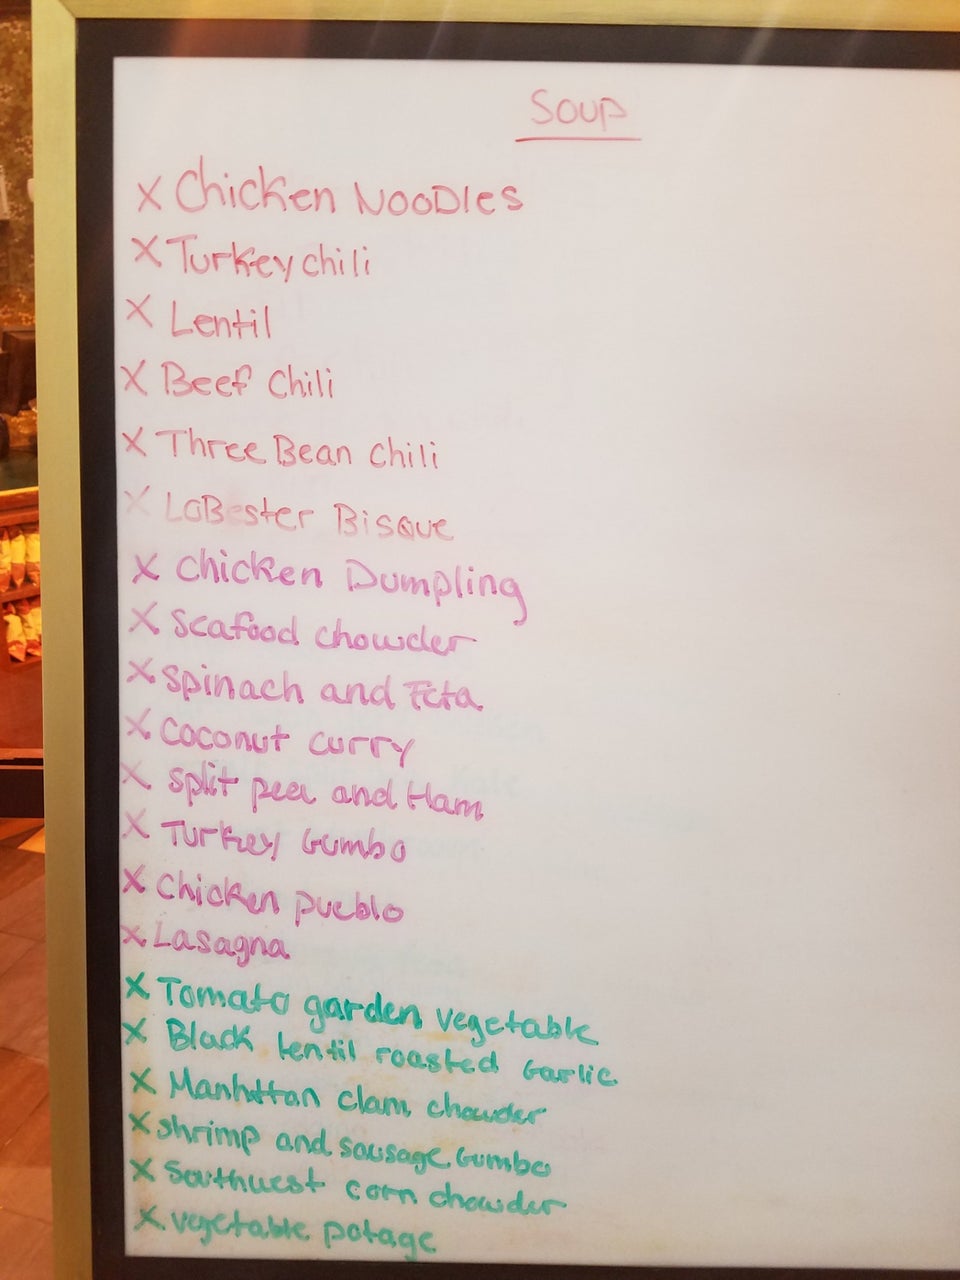 Soup
X Chicken NOODles
X Turkey chili
X Lentil
X Beef Chili
X Three Bean Chili
X LoBester Bisque
X Chicken Dumpling
X Seafood chowder
X Spinach and Feta
X Coconut curry
X Split pea and Ham
X Turkey Gumbo
X Chicken pueblo
X Lasagna
X Tomato garden vegetable
X Black lentil roasted Garlic
X Manhttan clam chowder
X shrimp and sausage Gumbo
X Southwest corn chowder
X vegetable potage